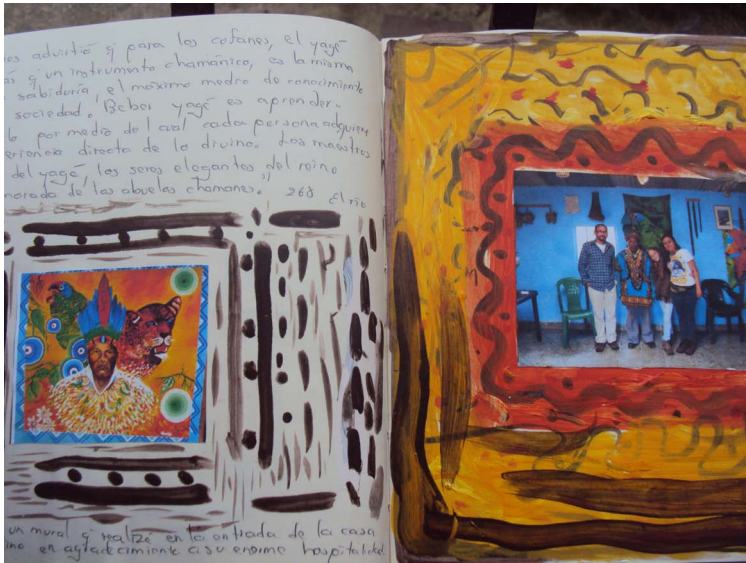 es advirtió q' para los cofanes, el yagé
ás q' un instrumento chamánico, es la misma
sabiduría, el máximo medio de conocimiento
sociedad. Beber yagé es aprender.
por medio del cual cada persona adquiere
eriencia directa de lo divino. Los maestros
del yagé, los seres elegantes del reino
morada de los abuelos chamanes. 268 El río
un mural q' realizé en la entrada de la casa
ino en agradecimiento a su enorme hospitalidad